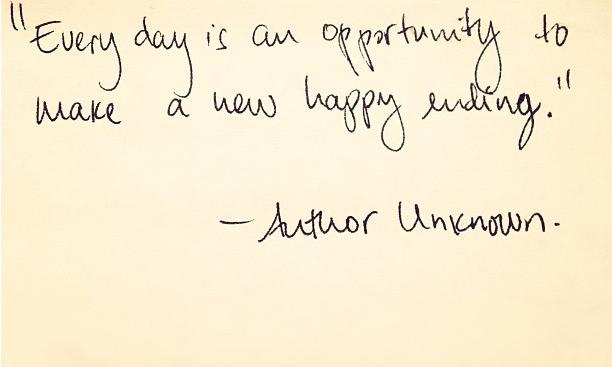 "Every day is an opportunity to
make a new happy ending."
- Author Unknown.